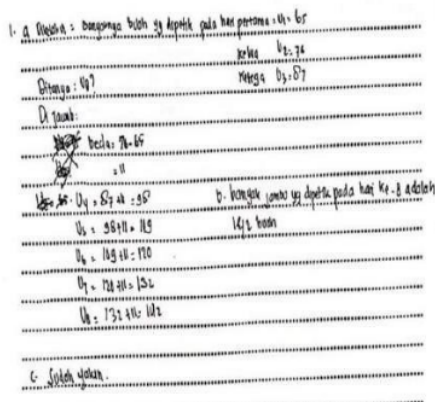 1. a Diketahui = banyaknya buah yg dipetik pada hari pertama = U1 = 65
kedua U2 = 76
ketiga U3 = 87
Ditanya : U8?
Di jawab:
beda = 76-65
= 11
U4 = 87+11 = 98
U5 = 98+11 = 109
U6 = 109+11 = 120
U7 = 120+11 = 132
U8 = 132+11 = 142
b. banyak jambu yg dipetik pada hari ke-8 adalah
142 buah
c. Sudah yakin.